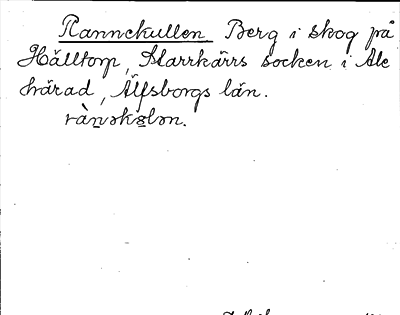 Rannekullen Berg i skog på
Hålltorp, Starrkärrs socken i Ale
härad, Älfsborgs län.